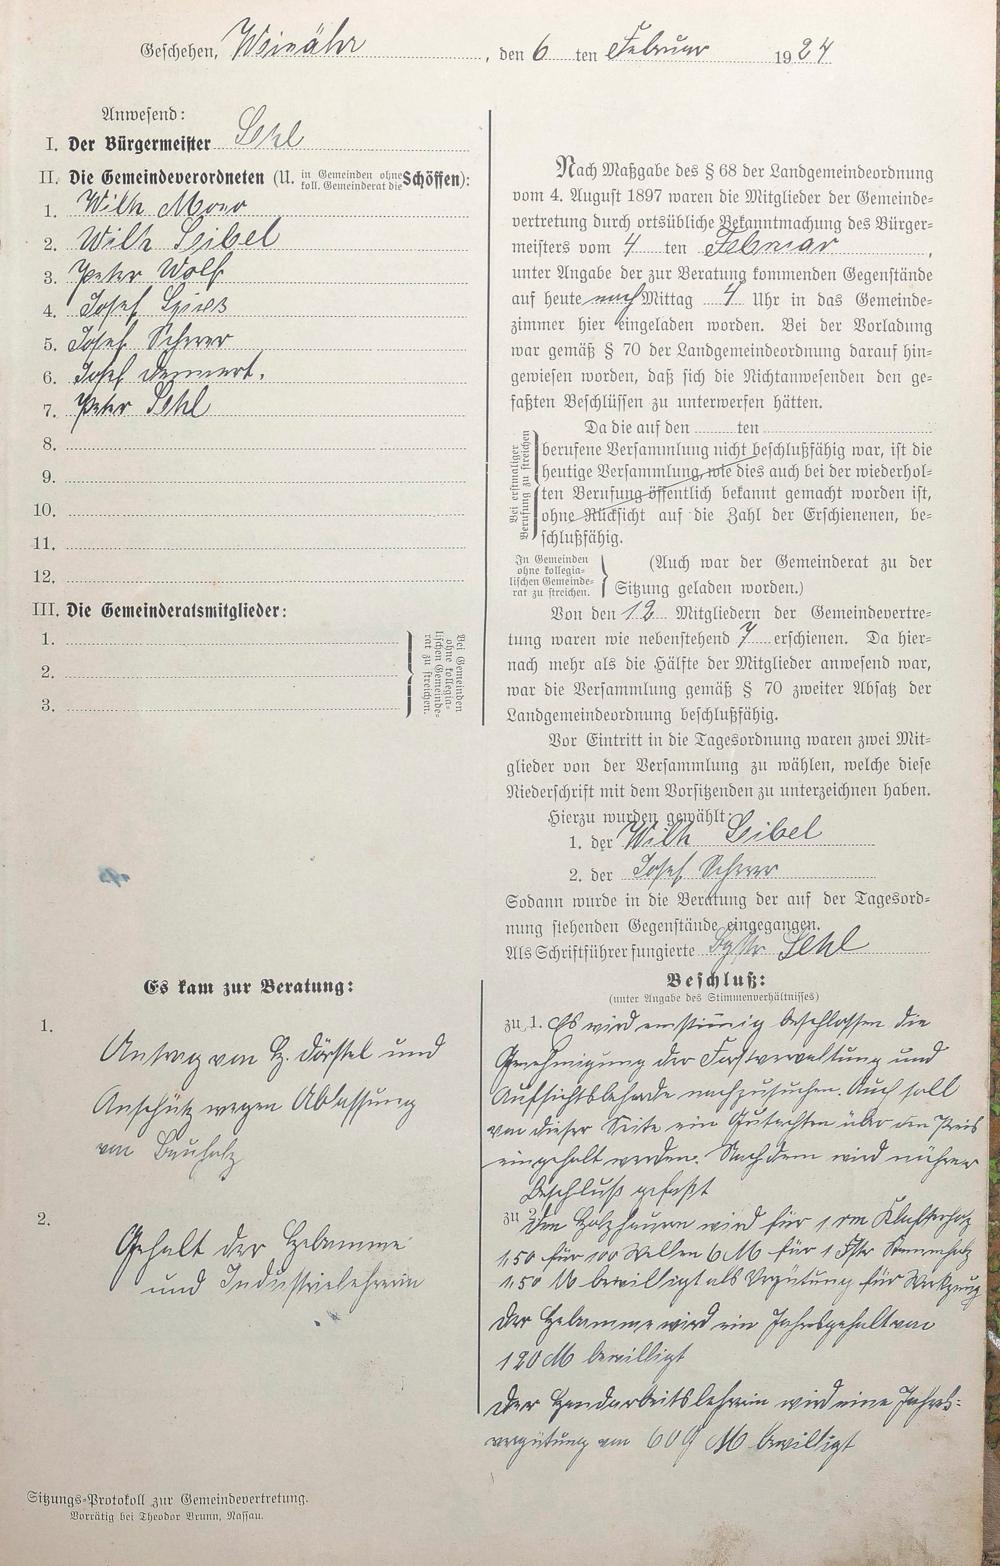 Geschehen, Weinähr, den 6 ten Februar 1924
Anwesend:
I. Der Bürgermeister Sehl
II. Die Gemeindeverordneten (U. in Gemeinden ohne koll. Gemeinderat die Schöffen):
1. Wilh
2. Wilh Leibel
3. Peter Wolf
4. Josef Spies
5. Josef Scherer
6. Josef
7. Peter Sehl
8.
9.
10.
11.
12.
III. Die Gemeinderatsmitglieder:
1.
2.
3.
Bei Gemeinden
ohne kollegia-
lischen Gemeinde-
rat zu streichen.
Nach Maßgabe des § 68 der Landgemeindeordnung
vom 4. August 1897 waren die Mitglieder der Gemeinde-
vertretung durch ortsübliche Bekanntmachung des Bürger-
meisters vom 4 ten Februar,
unter Angabe der zur Beratung kommenden Gegenstände
auf heute nach Mittag 4 Uhr in das Gemeinde-
zimmer hier eingeladen worden. Bei der Vorladung
war gemäß § 70 der Landgemeindeordnung darauf hin-
gewiesen worden, daß sich die Nichtanwesenden den ge-
faßten Beschlüssen zu unterwerfen hätten.
Bei erstmaliger
Berufung zu streichen
Da die auf den ten
berufene Versammlung nicht beschlußfähig war, ist die
heutige Versammlung, wie dies auch bei der wiederhol-
ten Berufung öffentlich bekannt gemacht worden ist,
ohne Rücksicht auf die Zahl der Erschienenen, be-
schlußfähig.
In Gemeinden
ohne kollegia-
lischen Gemeinde-
rat zu streichen.
(Auch war der Gemeinderat zu der
Sitzung geladen worden.)
Von den 12 Mitgliedern der Gemeindevertre-
tung waren wie nebenstehend 7 erschienen. Da hier-
nach mehr als die Hälfte der Mitglieder anwesend war,
war die Versammlung gemäß § 70 zweiter Absatz der
Landgemeindeordnung beschlußfähig.
Vor Eintritt in die Tagesordnung waren zwei Mit-
glieder von der Versammlung zu wählen, welche diese
Niederschrift mit dem Vorsitzenden zu unterzeichnen haben.
Hierzu wurden gewählt:
1. der Wilh Leibel
2. der Josef Scherer
Sodann wurde in die Beratung der auf der Tagesord-
nung stehenden Gegenstände eingegangen.
Als Schriftführer fungierte Bgstr Sehl
Es kam zur Beratung:
1.
Antrag von H. Dörstel und
Anschütz wegen Ablassung
von Bauholz
2.
Gehalt der Hebamme
und Industrielehrerin
Beschluß:
(unter Angabe des Stimmenverhältnisses)
zu 1. Es wird einstimig beschlossen die
Genehmigung der Forstverwaltung und
Aufsichtsbehörde nachzusuchen. Auch soll
von dieser Seite ein Gutachten über den Preis
eingeholt werden. Nachdem wird näherer
Beschluß gefaßt
zu 2. Den Holzhauern wird für 1 rm Klafterholz
1,50 für 100 Wellen 6 M für 1 Fstr Stammholz
1.50 M bewilligt als Vergütung für Werkzeug
Der Hebamme wird ein Jahresgehalt von
120 M bewilligt
Der Handarbeitslehrerin wird eine Jahres-
vergütung von M bewilligt
Sitzungs-Protokoll zur Gemeindevertretung.
Vorrätig bei Theodor Brunn, Nassau.